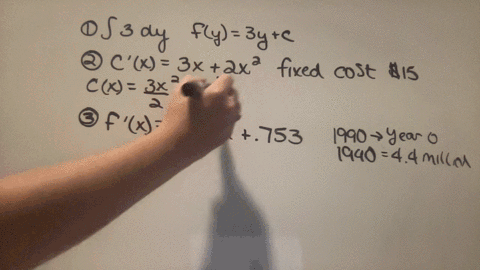 ① ∫ 3 dy f(y) = 3y + c
② C'(x) = 3x + 2x² fixed cost $15
C(x) = 3x²/2
③ f'(x) = + .753 1990 → Year 0
1990 = 4.4 million